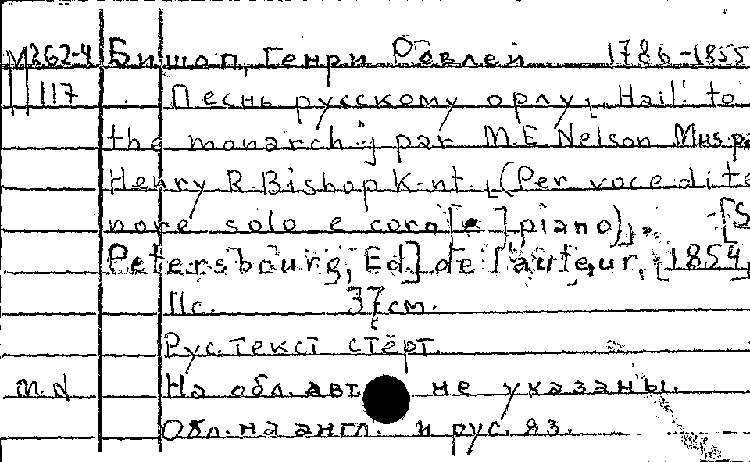 М262-4 Бишоп, Генри Ровлей 1786-1855
117 Песнь русскому орлу. Hail! to
the monarch; par M.E. Nelson Mus. pa
Henry R. Bishop K-nt. (Per voce di te
nore solo e coro [e] piano). - [S
Petersbourg, Ed.] de l'auteur, [1854,
11с. 37см.
Рус. текст стёрт.
На обл. авт. не указаны.
Обл. на англ. и рус. яз.